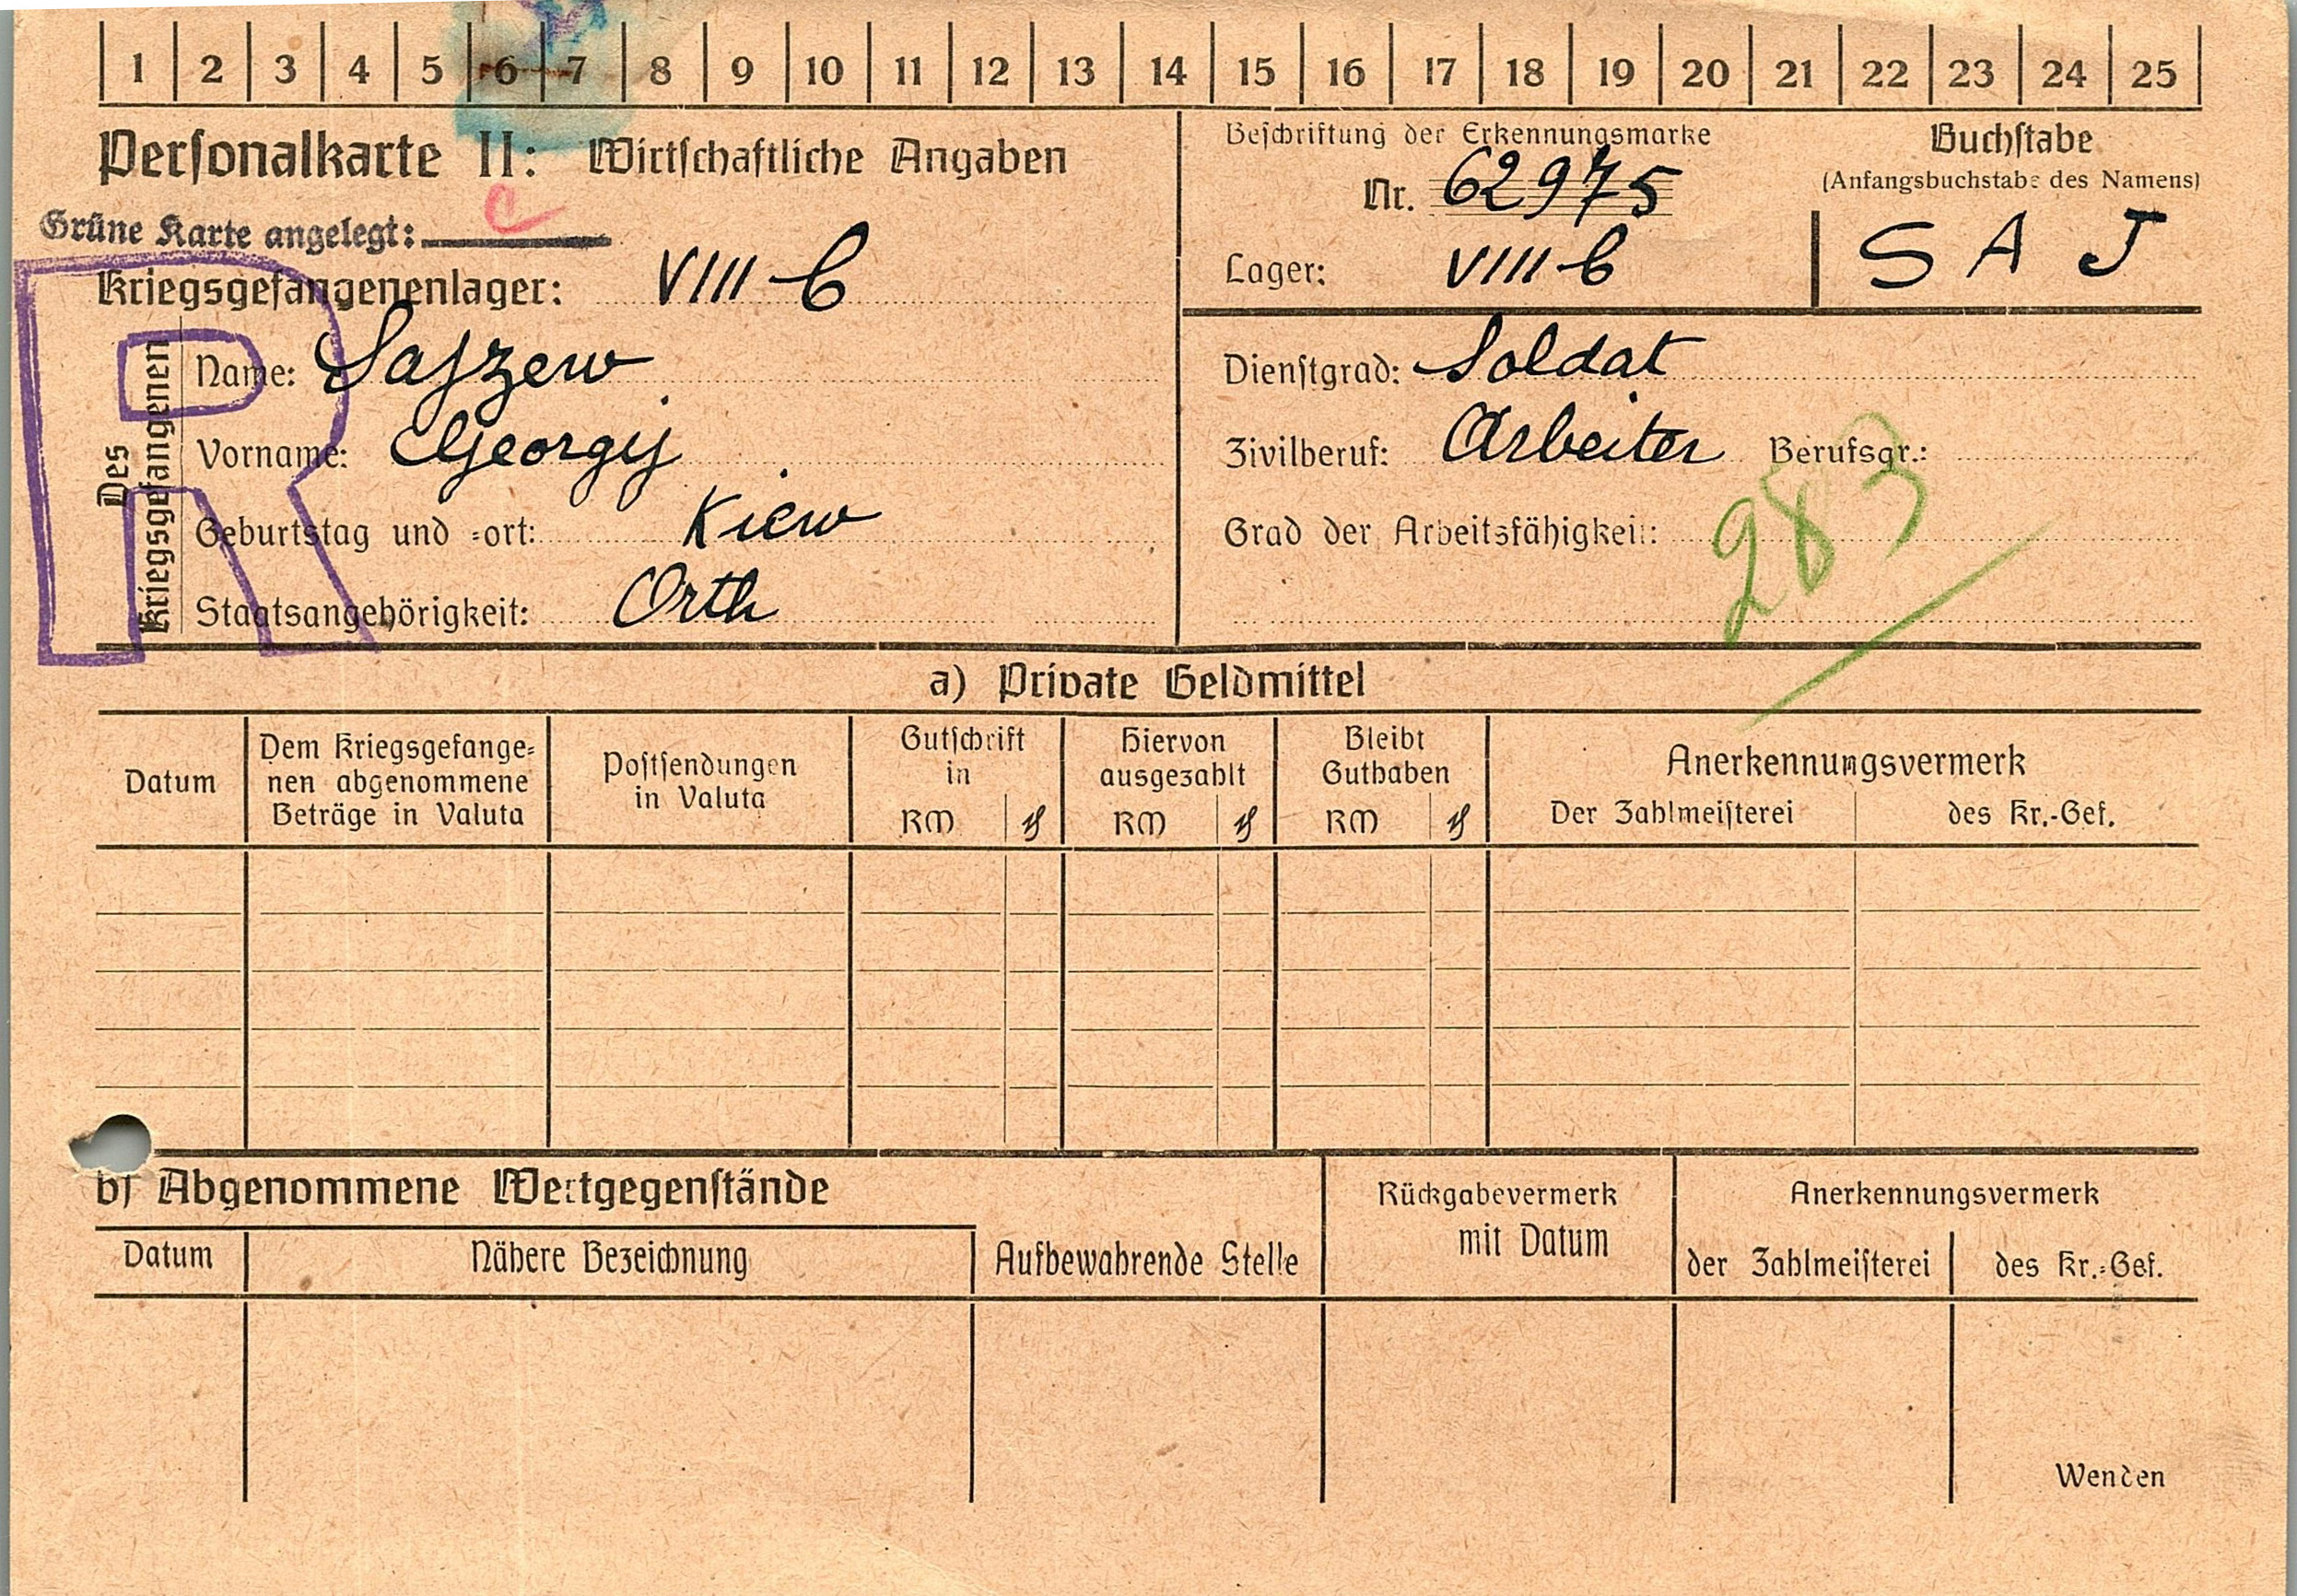 1 2 3 4 5 6 7 8 9 10 11 12 13 14 15 16 17 18 19 20 21 22 23 24 25
Personalkarte II: Wirtschaftliche Angaben
Grüne Karte angelegt:
Kriegsgefangenenlager: VIII B
Des Kriegsgefangenen
Name: Sajzew
Vorname: Georgij
Geburtstag und -ort: Kiew
Staatsangehörigkeit: Orth
Beschriftung der Erkennungsmarke
Nr. 62975
Lager: VIII B
Buchstabe
(Anfangsbuchstabe des Namens)
S A J
Dienstgrad: Soldat
Zivilberuf: Arbeiter Berufsgr.:
Grad der Arbeitsfähigkeit:
283
a) Private Geldmittel
Datum
Dem Kriegsgefange-
nen abgenommene
Beträge in Valuta
Postsendungen
in Valuta
Gutschrift
in
RM ₰
Hiervon
ausgezahlt
RM ₰
Bleibt
Guthaben
RM ₰
Anerkennungsvermerk
Der Zahlmeisterei des Kr.-Gef.
b) Abgenommene Wertgegenstände
Datum Nähere Bezeichnung Aufbewahrende Stelle
Rückgabevermerk
mit Datum
Anerkennungsvermerk
der Zahlmeisterei des Kr.-Gef.
Wenden